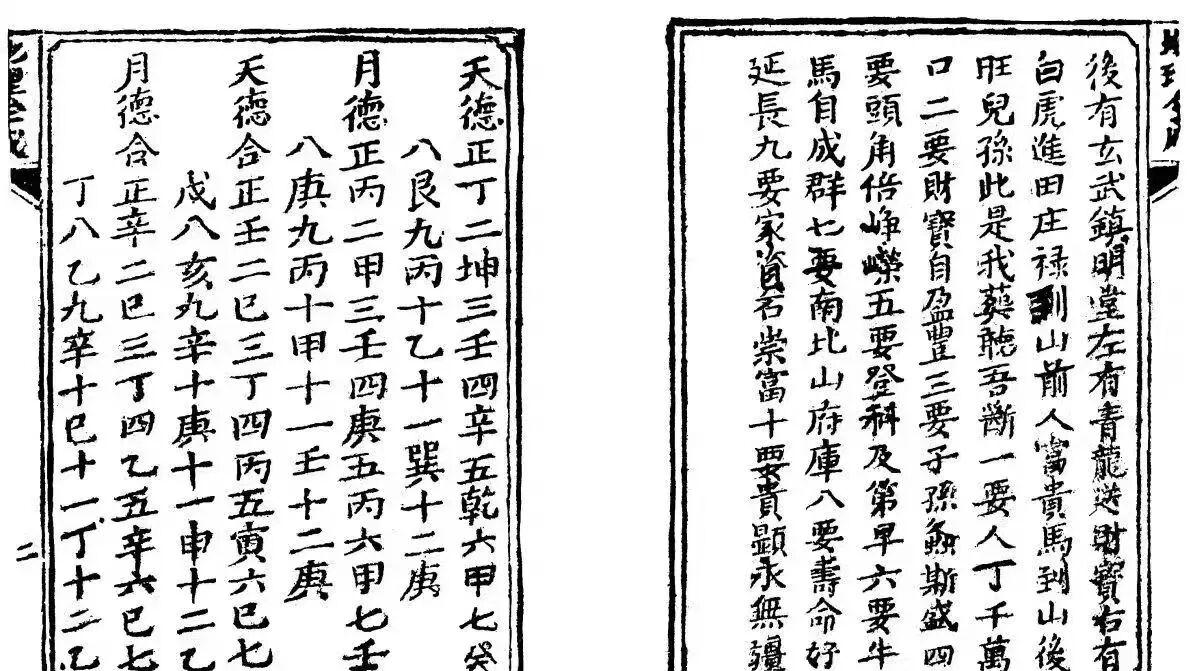 後有玄武鎮明堂左有青龍送財寶右有
白虎進田庄禄到山前人富貴馬到山後
旺兒孫此是我葬聽吾斷一要人丁千萬
口二要財寶自盈豐三要子孫螽斯盛四
要頭角倍崢嶸五要登科及第早六要牛
馬自成群七要南北山府庫八要壽命好
延長九要家資石崇富十要貴顯永無疆
天德正丁二坤三壬四辛五乾六甲七癸
八艮九丙十乙十一巽十二庚
月德正丙二甲三壬四庚五丙六甲七壬
八庚九丙十甲十一壬十二庚
天德合正壬二巳三丁四丙五寅六巳七
戊八亥九辛十庚十一申十二乙
月德合正辛二巳三丁四乙五辛六巳七
丁八乙九辛十巳十一丁十二乙
二